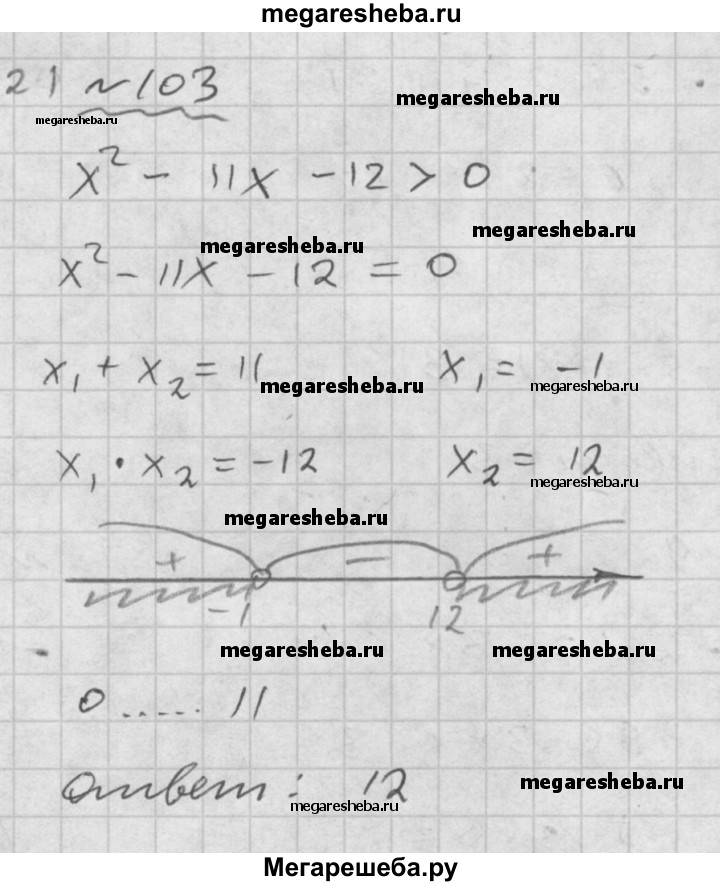 megaresheba.ru
21 ~103
megaresheba.ru
megaresheba.ru
x² - 11x - 12 > 0
megaresheba.ru
megaresheba.ru
x² - 11x - 12 = 0
x₁ + x₂ = 11 x₁ = -1
megaresheba.ru megaresheba.ru
x₁ · x₂ = -12 x₂ = 12
megaresheba.ru
megaresheba.ru
+ - +
-1 12
megaresheba.ru megaresheba.ru
0 ...... 11
ответ: 12
megaresheba.ru
megaresheba.ru
Мегарешеба.ру